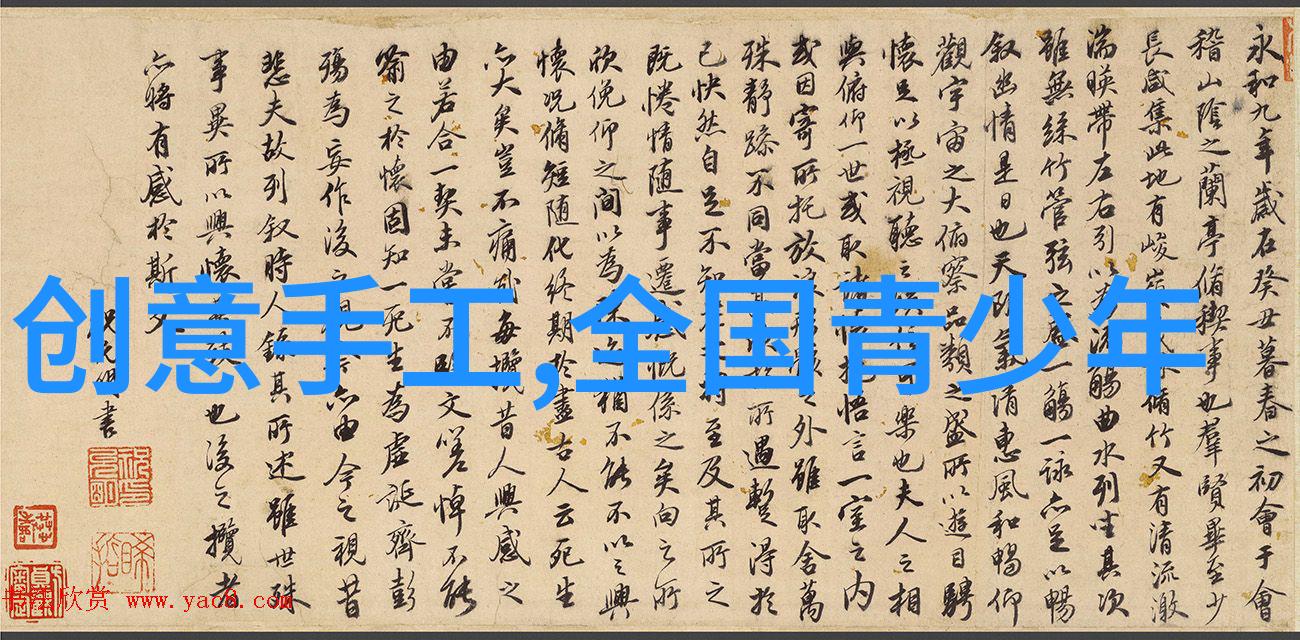 永和九年歲在癸丑暮春之初會于會
稽山陰之蘭亭脩稧事也羣賢畢至少
長咸集此地有峻脩竹又有清流激
湍暎帶左右引以流觴曲水列坐其次
雖無絲竹管弦之盛一觴一詠亦足以暢
叙幽情是日也天朗氣清惠風和暢仰
觀宇宙之大俯察品類之盛所以遊目騁
懷足以極視聽之樂也夫人之相
與俯仰一世或取諸懷抱悟言一室之內
或因寄所托放浪形骸之外雖取舍萬
殊靜躁不同當其於所遇蹔得於
己快然自足不知將至及其所之
既惓情隨事遷感慨係之矣向之所
欣俛仰之間以為猶不能不以之興
懷况脩短隨化終期於盡古人云死生
亦大矣豈不痛哉每攬昔人興感之
由若合一契未嘗不臨文嗟悼不能
喻之於懷固知一死生為虛誕齊彭
殤為妄作後之視今亦由今之視昔
悲夫故列叙時人錄其所述雖世殊
事異所以興懷其致一也後之攬者
亦將有感於斯文
祝允明書
创意手工,全国青少年
书法欣赏 www.yac8.com